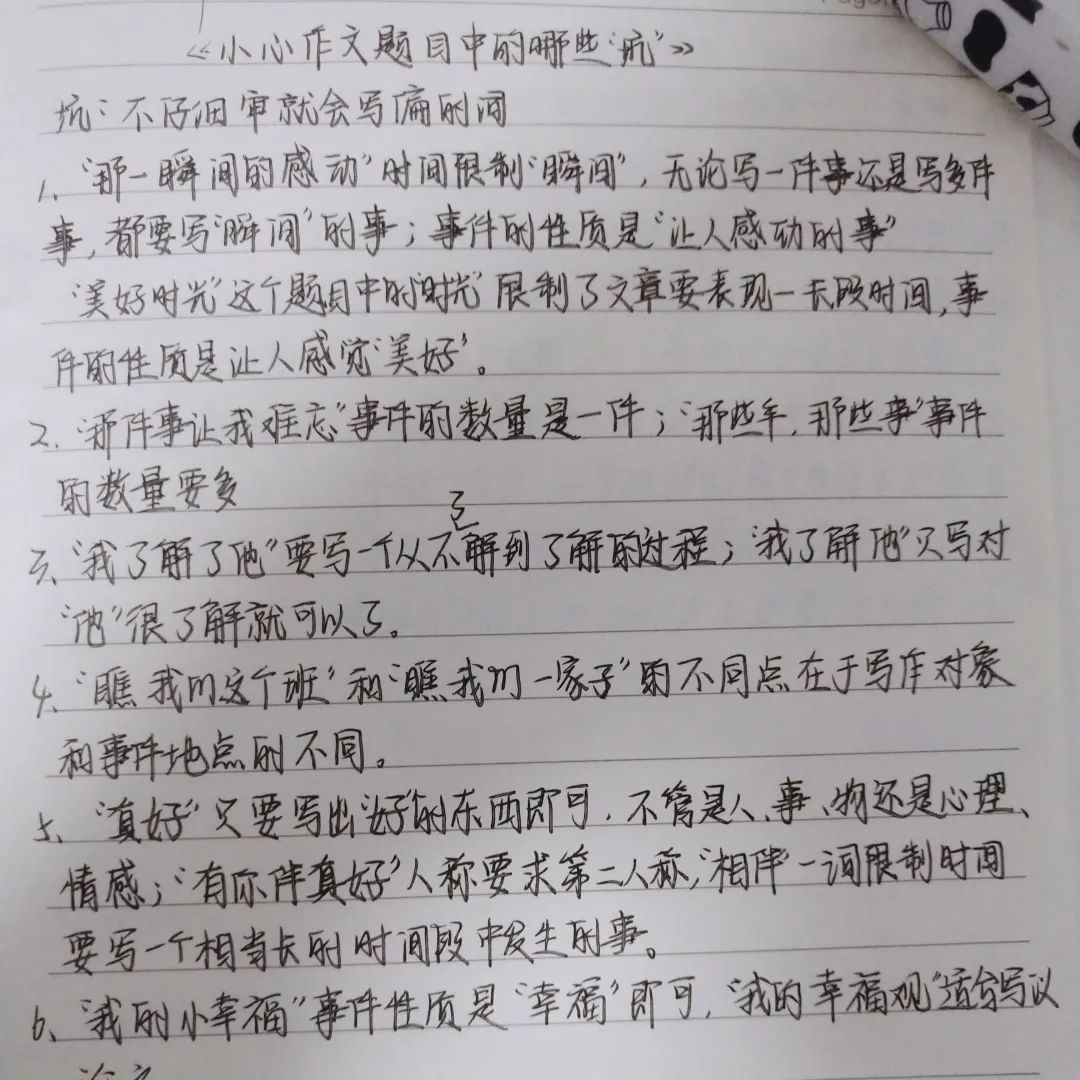 《小心作文题目中的哪些“坑”》
坑：不仔细审就会写偏的词
1、“那一瞬间的感动”时间限制“瞬间”，无论写一件事还是写多件
事，都要写“瞬间”的事；事件的性质是“让人感动的事”
“美好时光”这个题目中的“时光”限制了文章要表现一长段时间，事
件的性质是让人感觉“美好”。
2、“那件事让我难忘”事件的数量是一件；“那些年，那些事”事件
的数量要多
3、“我了解了他”要写一个从不了解到了解的过程；“我了解他”只写对
“他”很了解就可以了。
4、“瞧我们这个班”和“瞧我们一家子”的不同点在于写作对象
和事件地点的不同。
5、“真好”只要写出“好”的东西即可，不管是人、事、物还是心理、
情感；“有你伴真好”人称要求第二人称，“相伴”一词限制时间
要写一个相当长的时间段中发生的事。
6、“我的小幸福”事件性质是“幸福”即可，“我的幸福观”适合写议